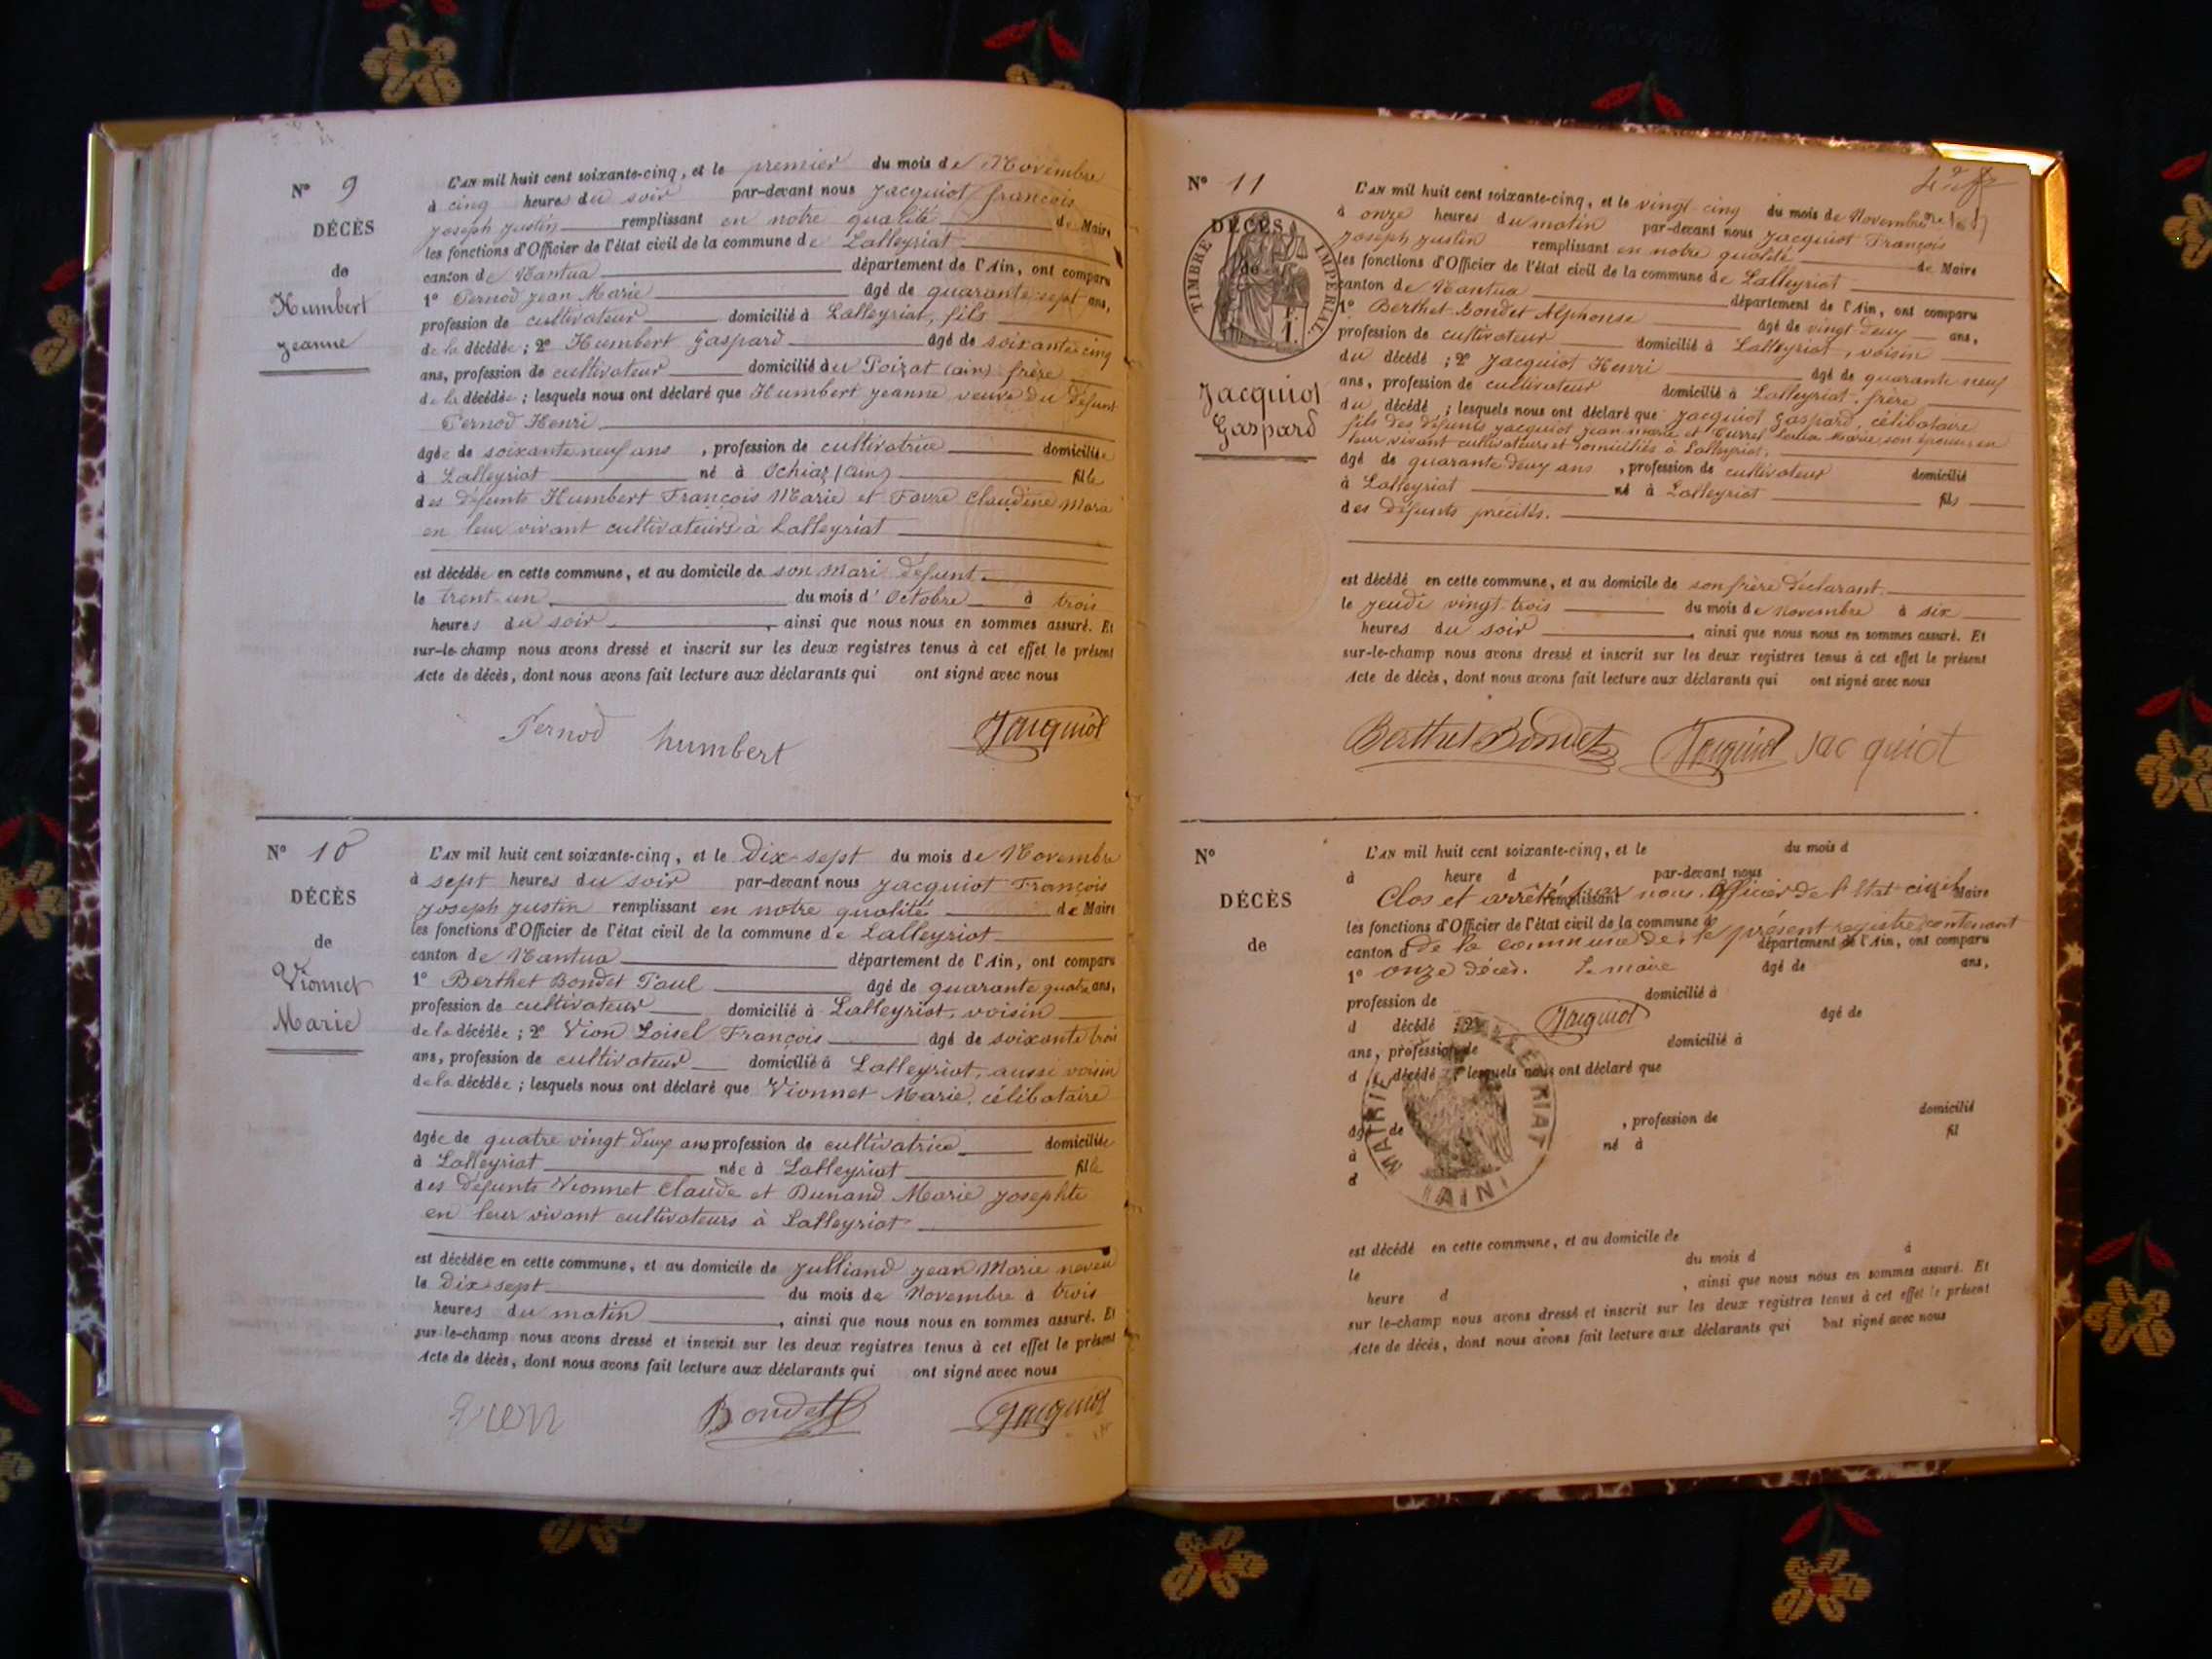 N° 9
DÉCÈS
de
Humbert
Jeanne
L'AN mil huit cent soixante-cinq, et le premier du mois de Novembre
à cinq heures du soir par-devant nous Jacquiot François
Joseph Justin remplissant en notre qualité de Maire
les fonctions d'Officier de l'état civil de la commune de Lalleyriat
canton de Nantua département de l'Ain, ont comparu
1° Pernod Jean Marie âgé de quarante-sept ans,
profession de cultivateur domicilié à Lalleyriat, fils
de la décédée ; 2° Humbert Gaspard âgé de soixante cinq
ans, profession de cultivateur domicilié du Poizat (ain) frère
de la décédée ; lesquels nous ont déclaré que Humbert Jeanne veuve du défunt
Pernod Henri
âgée de soixante neuf ans , profession de cultivatrice domiciliée
à Lalleyriat né à Ochiaz (ain) fille
des défunts Humbert François Marie et Favre Claudine Maria
en leur vivant cultivateurs à Lalleyriat
est décédée en cette commune, et au domicile de son mari défunt
le trent-un du mois d'Octobre à trois
heures du soir , ainsi que nous nous en sommes assuré. Et
sur-le-champ nous avons dressé et inscrit sur les deux registres tenus à cet effet le présent
Acte de décès, dont nous avons fait lecture aux déclarants qui ont signé avec nous
Pernod humbert Jacquiot
N° 10
DÉCÈS
de
Vionnet
Marie
L'AN mil huit cent soixante-cinq, et le Dix-sept du mois de Novembre
à sept heures du soir par-devant nous Jacquiot François
Joseph Justin remplissant en notre qualité de Maire
les fonctions d'Officier de l'état civil de la commune de Lalleyriat
canton de Nantua département de l'Ain, ont comparu
1° Berthet Bondet Paul âgé de quarante quatre ans,
profession de cultivateur domicilié à Lalleyriat, voisin
de la décédée ; 2° Vion Loisel François âgé de soixante trois
ans, profession de cultivateur domicilié à Lalleyriat, aussi voisin
de la décédée ; lesquels nous ont déclaré que Vionnet Marie, célibataire
âgée de quatre vingt deux ans profession de cultivatrice domiciliée
à Lalleyriat née à Lalleyriat fille
des défunts Vionnet Claude et Dunand Marie Josephte
en leur vivant cultivateurs à Lalleyriat
est décédée en cette commune, et au domicile de Julliand Jean Marie neveu
le Dix-sept du mois de Novembre à trois
heures du matin , ainsi que nous nous en sommes assuré. Et
sur-le-champ nous avons dressé et inscrit sur les deux registres tenus à cet effet le présent
Acte de décès, dont nous avons fait lecture aux déclarants qui ont signé avec nous
Vion Bondet Jacquiot
N° 11
DÉCÈS
de
TIMBRE IMPÉRIAL
Jacquiot
Gaspard
L'AN mil huit cent soixante-cinq, et le vingt cinq du mois de Novembre
à onze heures du matin par-devant nous Jacquiot François
Joseph Justin remplissant en notre qualité de Maire
les fonctions d'Officier de l'état civil de la commune de Lalleyriat
canton de Nantua département de l'Ain, ont comparu
1° Berthet-Bondet Alphonse âgé de vingt deux ans,
profession de cultivateur domicilié à Lalleyriat, voisin
du décédé ; 2° Jacquiot Henri âgé de quarante neuf
ans, profession de cultivateur domicilié à Lalleyriat, frère
du décédé ; lesquels nous ont déclaré que Jacquiot Gaspard, célibataire
fils des défunts Jacquiot Jean-marie et Marie, son épouse en
leur vivant cultivateurs et domiciliés à Lalleyriat,
âgé de quarante deux ans , profession de cultivateur domicilié
à Lalleyriat né à Lalleyriat fils
des défunts précités.
est décédé en cette commune, et au domicile de son frère déclarant
le jeudi vingt-trois du mois de novembre à six
heures du soir , ainsi que nous nous en sommes assuré. Et
sur-le-champ nous avons dressé et inscrit sur les deux registres tenus à cet effet le présent
Acte de décès, dont nous avons fait lecture aux déclarants qui ont signé avec nous
Berthet Bondet Jacquiot Jacquiot
N°
DÉCÈS
de
L'AN mil huit cent soixante-cinq, et le du mois d
à heure d par-devant nous
Clos et arrêté par nous Officier de l'Etat civil
remplissant d Maire
les fonctions d'Officier de l'état civil de la commune d
de la commune de le présent registre contenant
canton d département de l'Ain, ont comparu
1° onze décès. Le maire âgé de ans,
profession de domicilié à
d décédé ; 2° Jacquiot âgé de
ans, profession de domicilié à
d décédé ; lesquels nous ont déclaré que
MAIRIE LALLEYRIAT (AIN)
âgé de , profession de domicilié
à né à fil
d
est décédé en cette commune, et au domicile de
le du mois d à
heure d , ainsi que nous nous en sommes assuré. Et
sur le-champ nous avons dressé et inscrit sur les deux registres tenus à cet effet le présent
Acte de décès, dont nous avons fait lecture aux déclarants qui ont signé avec nous